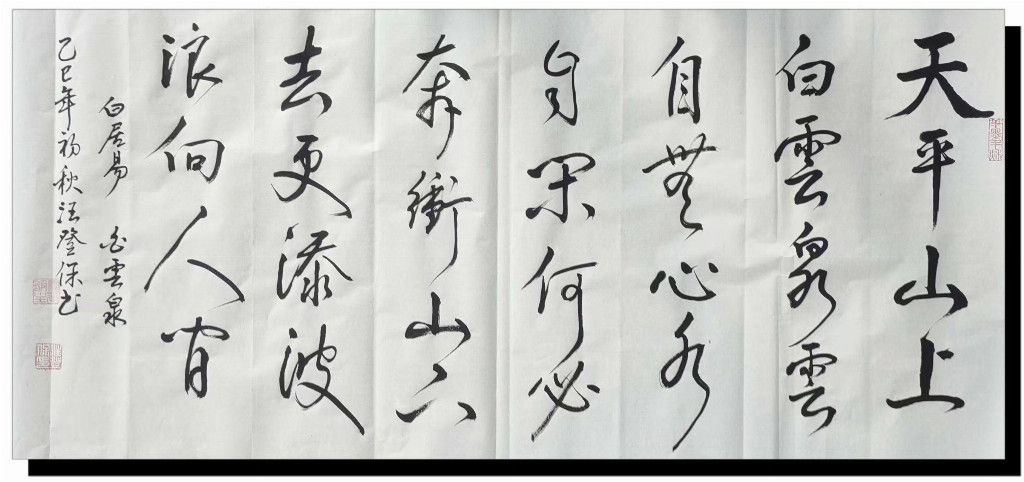 天平山上
白雲泉雲
自無心水
自閑何必
奔衝山下
去更添波
浪向人間
白居易 白雲泉
乙巳年初秋汪登保书